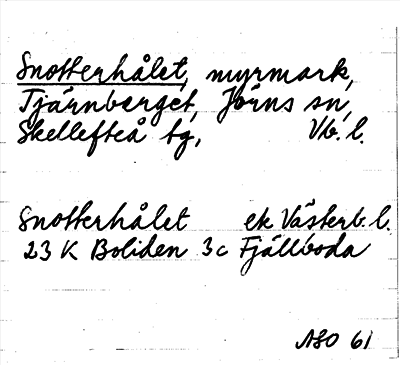 Snotterhålet, myrmark,
Tjärnberget, Jörns sn,
Skellefteå tg, Vb. l.
Snotterhålet ek Västerb. l.
23 K Boliden 3c Fjällboda
ASO 61